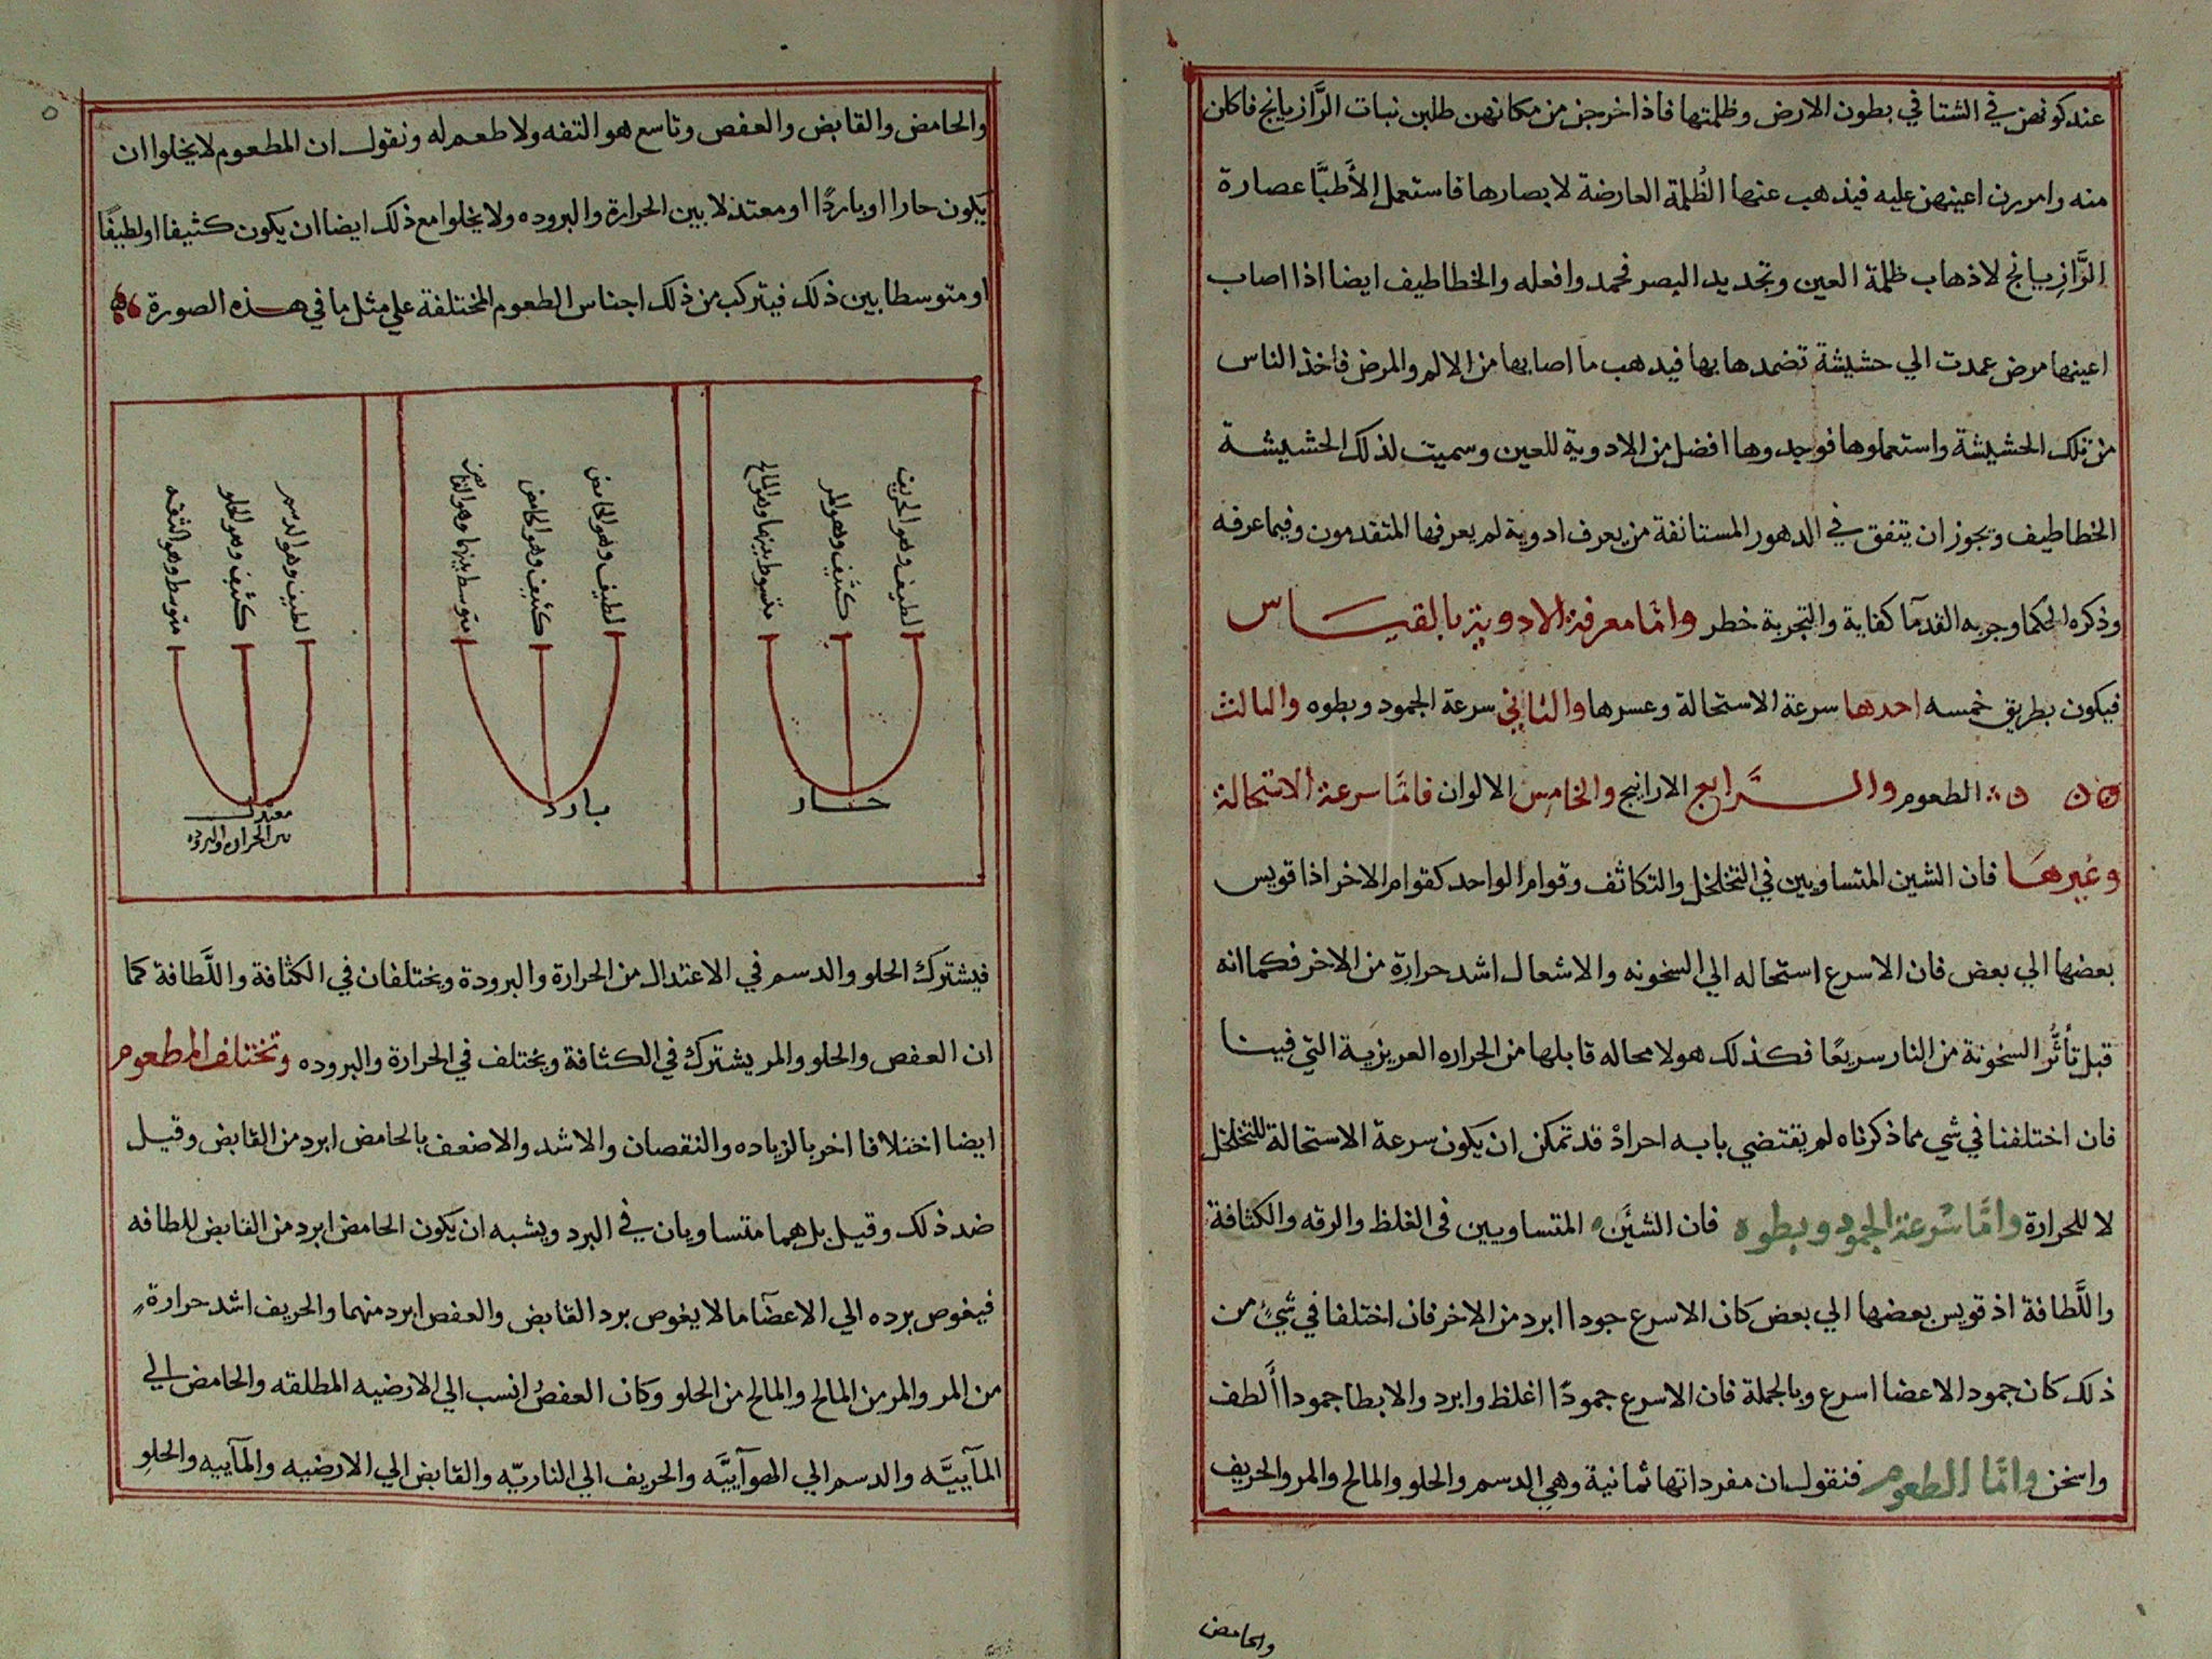 عند كونهن في الشتا في بطون الارض وظلمتها فاذا خرجن من مكانهن طلبن نبات الرَّازيانج فاكلن
منه وامررن اعينهن عليه فيذهب عنها الظُلمة العارضة لابصارها فاستعمل الأَطبَّا عصارة
الرَّازيانج لاذهاب ظلمة العين وتجديد البصر فحمدوا فعله والخطاطيف ايضا اذا اصاب
اعينها مرض عمدت الي حشيشة تضمدها بها فيدهب ما اصابها من الالم والمرض فاخذ الناس
من تلك الحشيشة واستعملوها فوجدوها افضل من الادوية للعين وسميت لذلك الحشيشة
الخطاطيف ويجوز ان يتفق في الدهور المستانفة من يعرف ادوية لم يعرفها المتقدمون وفيما عرفه
وذكره الحكما وجربه القدمآ كفاية والتجربة خطر وامَّا معرفة الادوية بالقيـاس
فيكون بطريق خمسه احدها سرعة الاستحالة وعسرها والثاني سرعة الجمود وبطوه والثالث
الطعوم والـرَّابع الاراييج والخامس الالوان فامَّا سرعة الاستحالة
وغيرها فان الشين المتساويين في التخلخل والتكاثف وقوام الواحد كقوام الاخر اذا قويس
بعضها الي بعض فان الاسرع استحاله الي السخونه والاشعال اشد حرارة من الاخر فكما انه
قبل تأثُّر السخونة من النار سريعًا فكذلك هو لا محاله قابلها من الحراره العريزية التي فينا
فان اختلفنا في شي مما ذكرناه لم يقتضي بابه احراد قد تمكن ان يكون سرعة الاستحالة للتخلخل
لا للحرارة وامَّا سُرعة الجمود وبطوه فان الشيئين المتساويين في الغلظ والرقه والكثافة
واللَّطافة اذ قويس بعضها الي بعض كان الاسرع جمودا ابرد من الاخر فان اختلفا في شيٍ من
ذلك كان جمود الاعضا اسرع وبالجملة فان الاسرع جمودًا اغلظ وابرد والابطا جمودا أَلطف
واسخن وامَّا الطعوم فنقول ان مفرداتها ثمانية وهي الدسم والحلو والمالح والمر والحريف
والحامض
والحامض والقابض والعفص وتاسع هو التفه ولا طعم له ونقول ان المطعوم لا يخلوا ان
يكون حارا او باردًا او معتدلا بين الحرارة والبروده ولا يخلوا مع ذلك ايضا ان يكون كثيفا او لطيفًا
او متوسطا بين ذلك فيتركب من ذلك اجناس الطعوم المختلفة علي مثل ما في هذه الصورة
لطيف وهو الحريف
كثيف وهو المر
متوسط بينهما وهو المالح
حـار
لطيف وهو الحامض
كثيف وهو الحامض
متوسط بينهما وهو القابض
بارد
لطيف وهو الدسم
كثيف وهو الحلو
متوسط وهو التفه
معتدل
بين الحراره والبروده
فيشترك الحلو والدسم في الاعتدال من الحرارة والبرودة ويختلفان في الكثافة واللَّطافة كما
ان العفص والحلو والمر يشترك في الكثافة ويختلف في الحرارة والبروده وتختلف المطعوم
ايضا اختلافا اخر بالزياده والنقصان والاشد والاضعف بالحامض ابرد من القابض وقيل
ضد ذلك وقيل بل هما متساويان في البرد ويشبه ان يكون الحامض ابرد من القابض للطافه
فيغوص برده الي الاعضآ ما لا يغوص برد القابض والعفص ابرد منهما والحريف اشد حرارة
من المر والمر من المالح والمالح من الحلو وكان العفص انسب الي الارضيه المطلقه والحامض الي
المآييَّه والدسم الي الهوآييَّه والحريف الي الناريّه والقابض الي الارضيه والمآييه والحلو